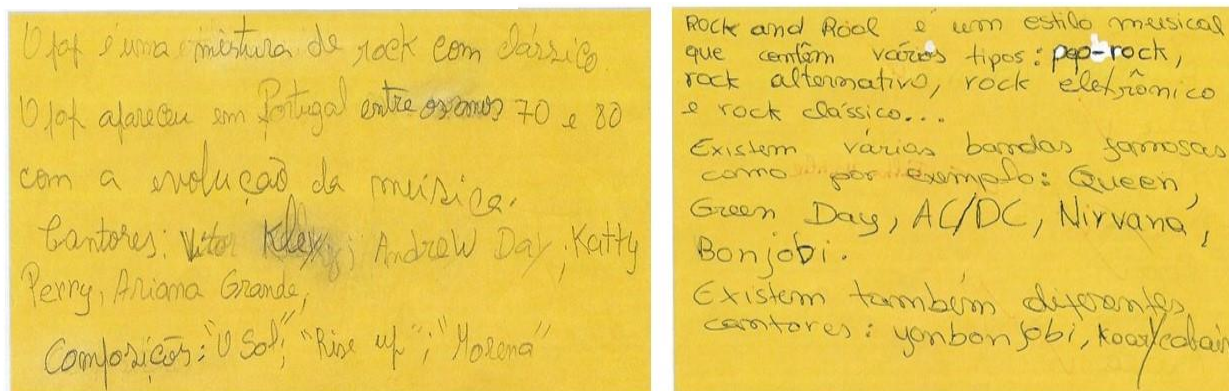 O pop é uma mistura de rock com clássico.
O pop apareceu em Portugal entre os anos 70 e 80
com a evolução da música.
Cantores: Vitor Kley; Andrew Day; Katty
Perry, Ariana Grande,
Composições: "O Sol"; "Rise up"; "Morena"
Rock and Rool é um estilo musical
que contêm vários tipos: pop-rock,
rock alternativo, rock eletrônico
e rock clássico...
Existem várias bandas famosas
como por exemplo: Queen,
Green Day, AC/DC, Nirvana,
Bonjobi.
Existem também diferentes
cantores: yonbonjobi,